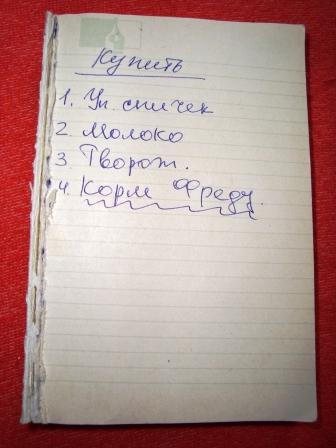 Купить
1. Уп. спичек
2. Молоко
3. Творог.
4. Корм Фреду.